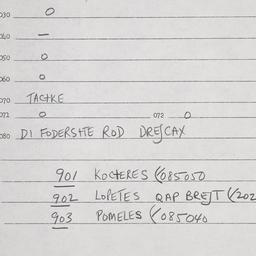 030 0
040 —
050 0
060 0
070 TACHKE
071 0 072 0
080 DI FODERSHTE ROD DREJCAX
901 KOCTERES (/085050
902 LOPETES QAP BREJT (/202
903 POMELES (/085040